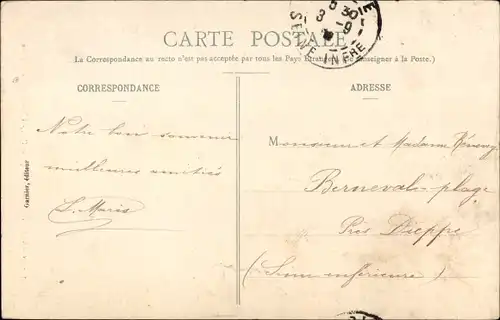 CARTE POSTALE
(La Correspondance au recto n'est pas acceptée par tous les Pays Etrangers. Se renseigner à la Poste.)
CORRESPONDANCE
ADRESSE
Notre bon souvenir
meilleures amitiés
L. Maris
Monsieur et Madame
Berneval-plage
Près Dieppe
(Seine inférieure)
Garnier, éditeur
SEINE INFRE
8 30